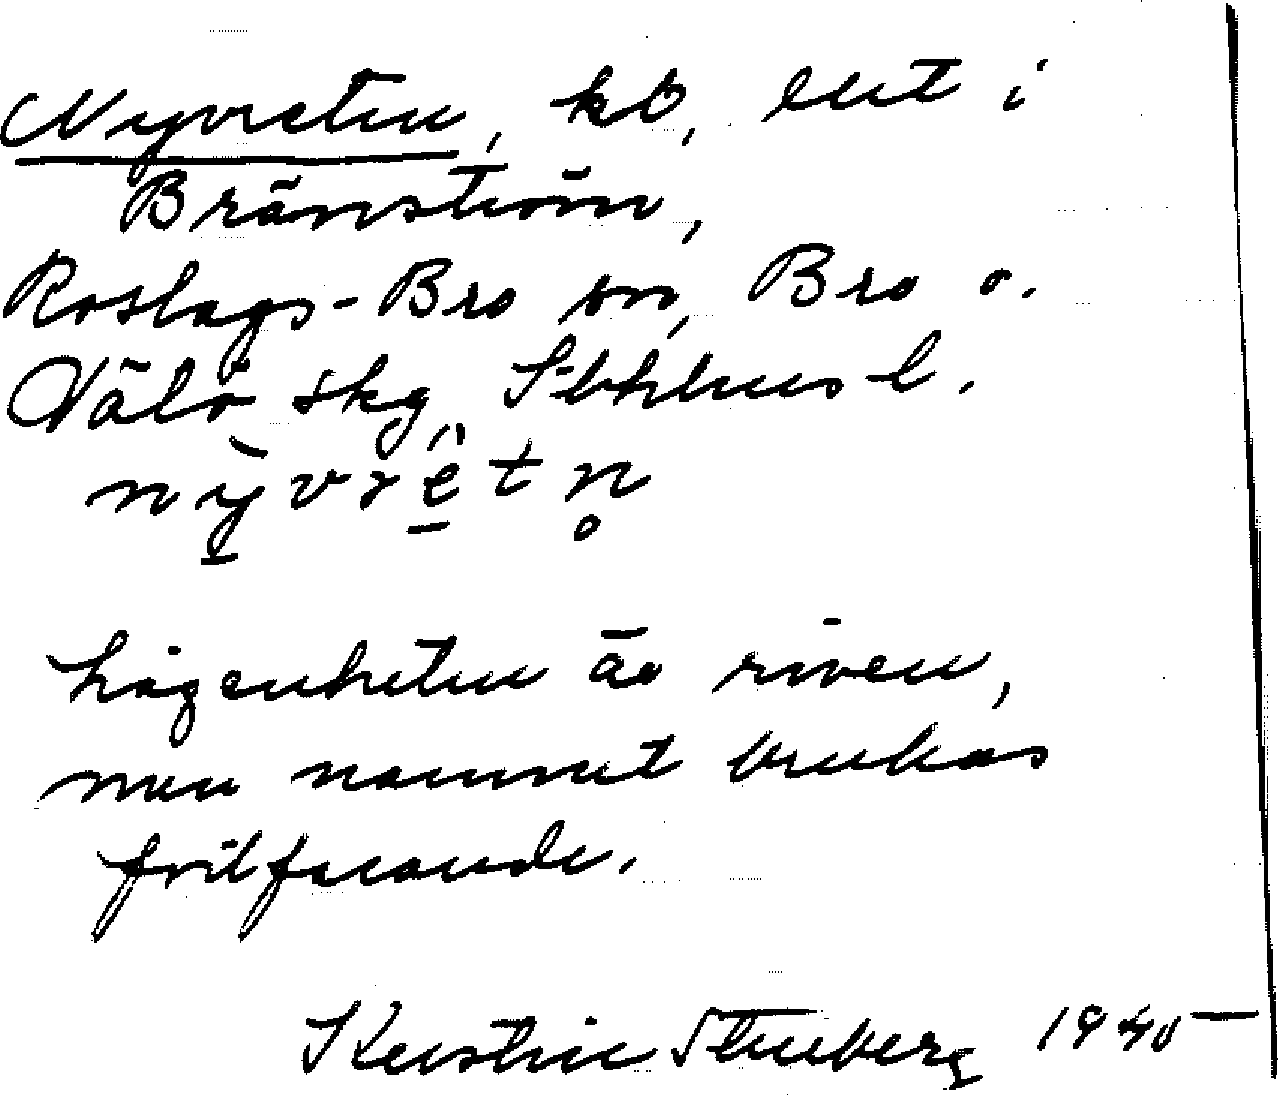 Nyvreten, kb, ent i
Bränström,
Roslags-Bro sn, Bro o.
Väto skg, Sthlms l.
nỳvrétn̥
Lägenheten är riven,
men namnet brukas
fortfarande.
Kerstin Stenberg 1940